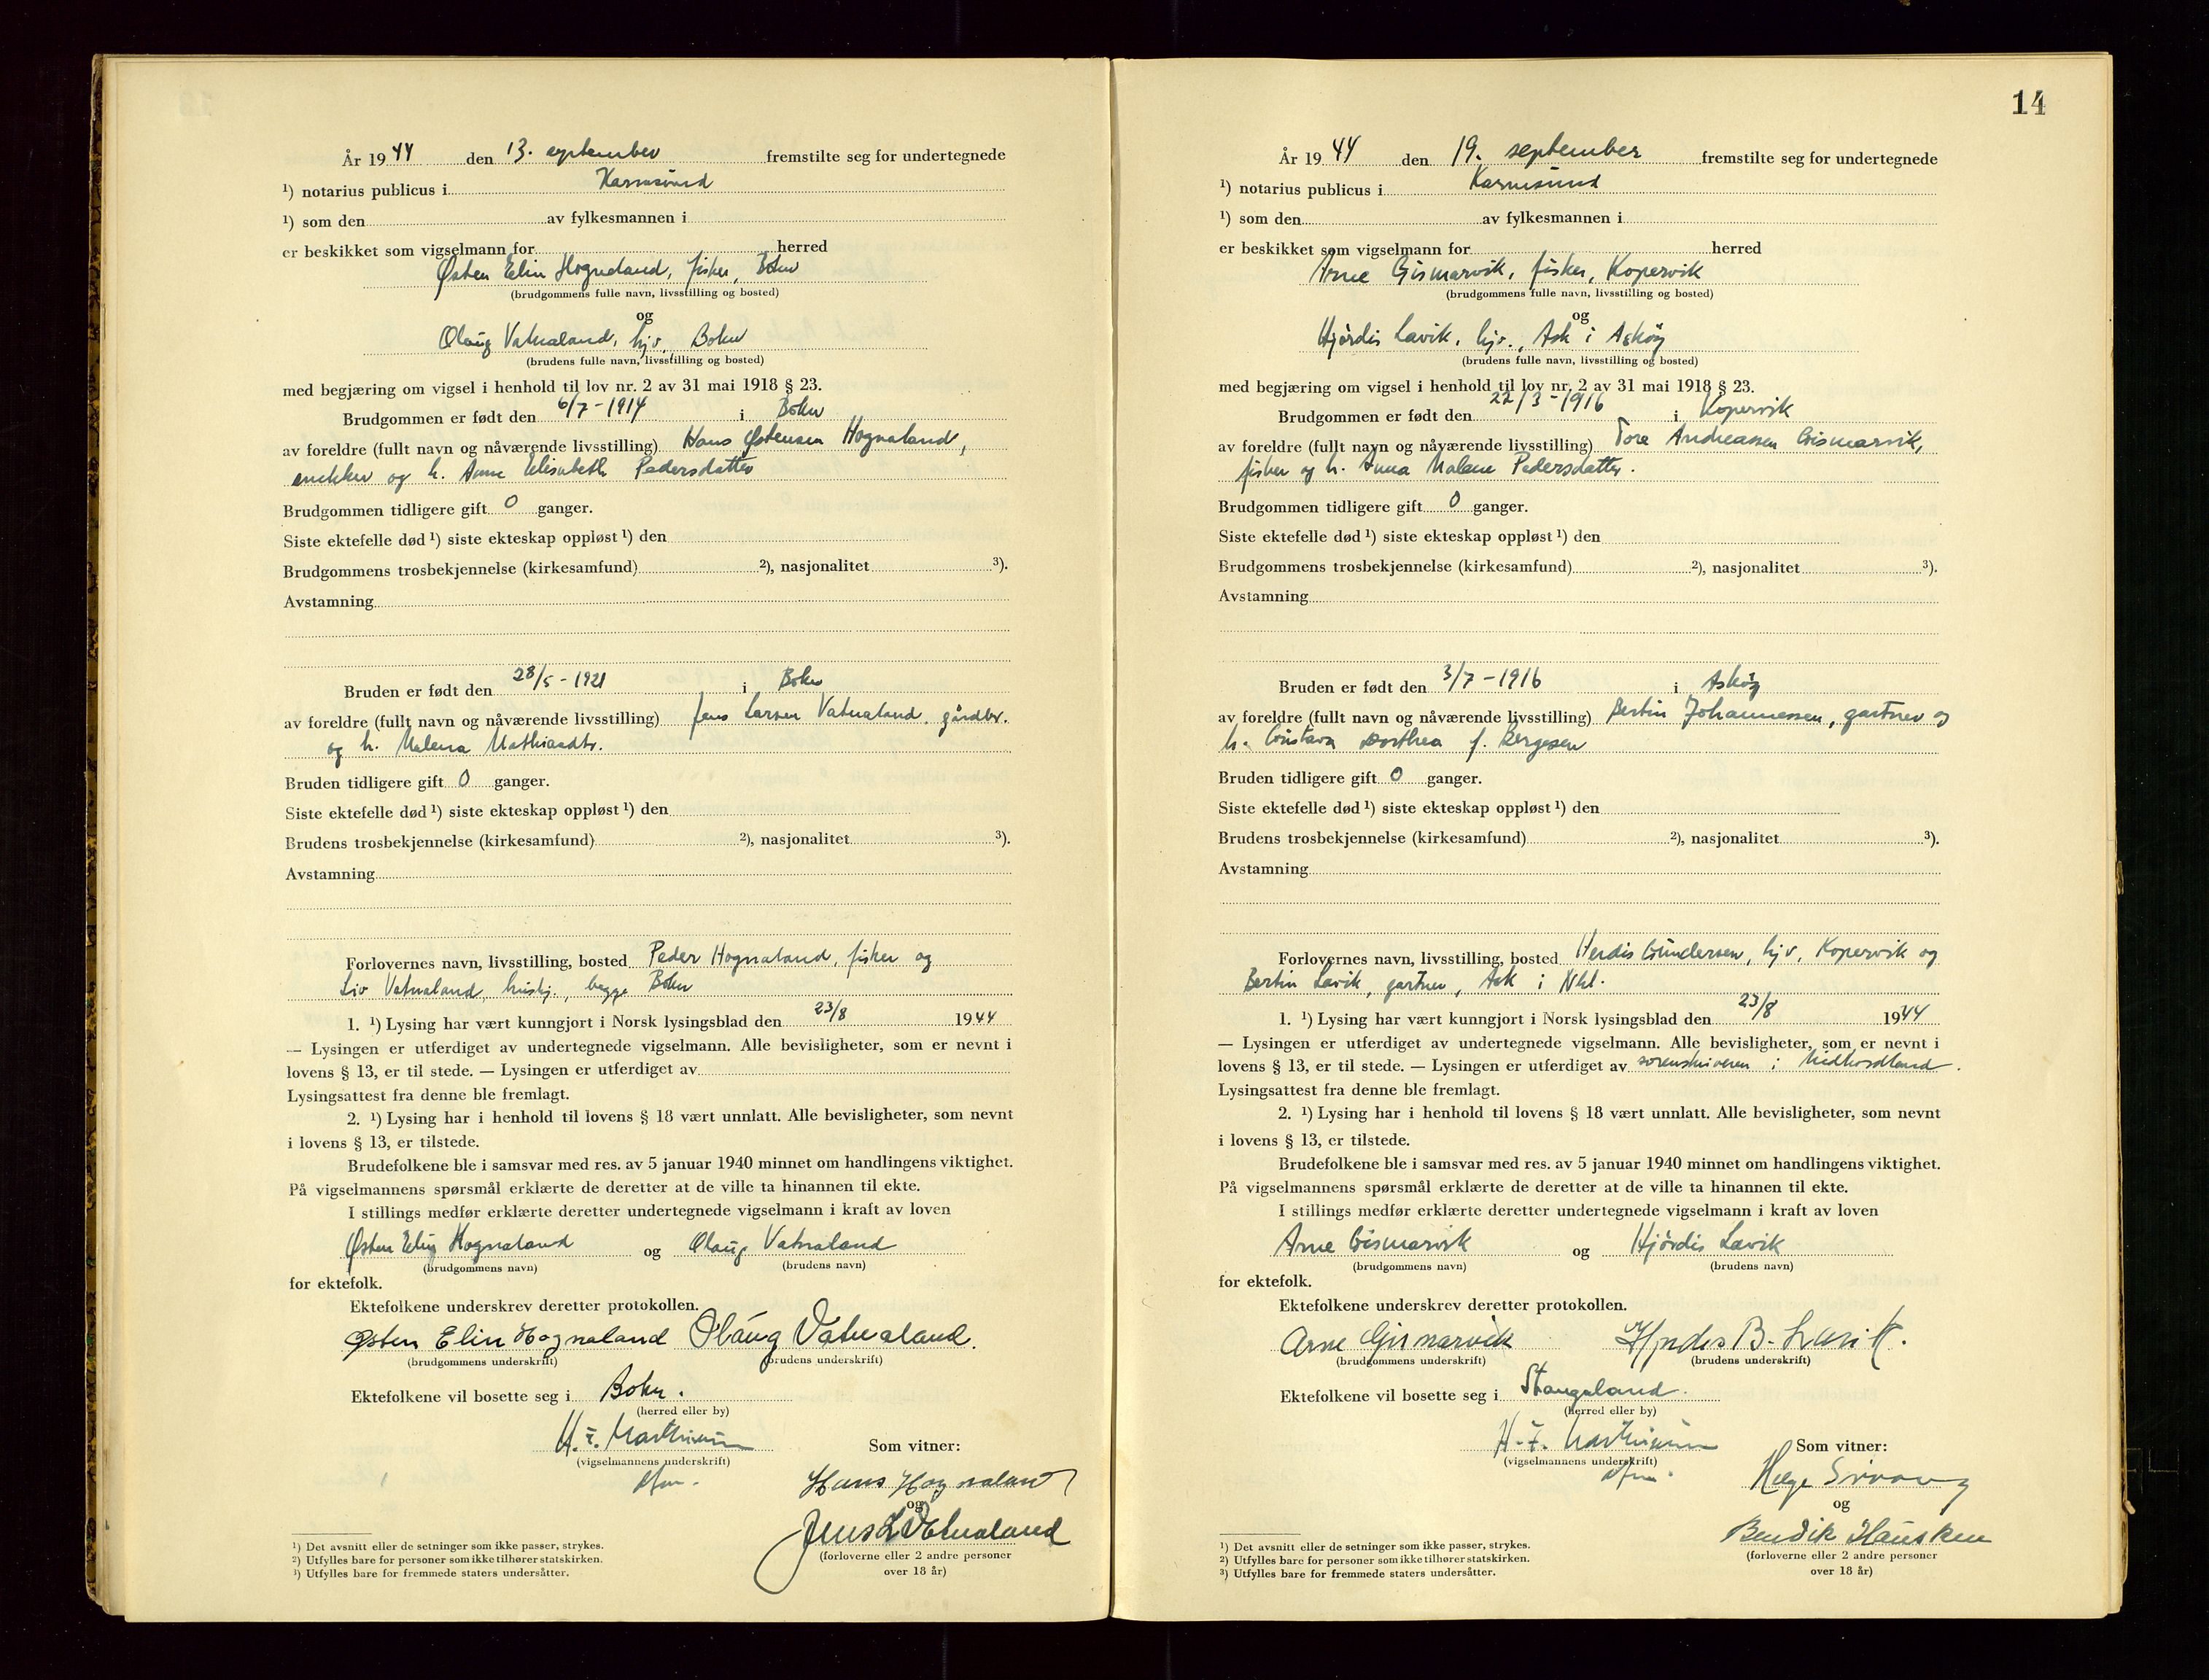 År 1944 den 13. september fremstilte seg for undertegnede
¹) notarius publicus i Karmsund
¹) som den av fylkesmannen i
er beskikket som vigselmann for herred
Østen Elin Hognaland, fisker, Bokn
(brudgommens fulle navn, livsstilling og bosted)
og
Olaug Vatnaland, hjv., Bokn
(brudens fulle navn, livsstilling og bosted)
med begjæring om vigsel i henhold til lov nr. 2 av 31 mai 1918 § 23.
Brudgommen er født den 6/7-1914 i Bokn
av foreldre (fullt navn og nåværende livsstilling) Hans Østensen Hognaland,
snekker og h. Anne Elisabeth Pedersdatter
Brudgommen tidligere gift 0 ganger.
Siste ektefelle død ¹) siste ekteskap oppløst ¹) den
Brudgommens trosbekjennelse (kirkesamfund) ²), nasjonalitet ³).
Avstamning
Bruden er født den 28/5-1921 i Bokn
av foreldre (fullt navn og nåværende livsstilling) Jens Larsen Vatnaland, gårdbr.
og h. Malena Mathiasdtr.
Bruden tidligere gift 0 ganger.
Siste ektefelle død ¹) siste ekteskap oppløst ¹) den
Brudens trosbekjennelse (kirkesamfund) ²), nasjonalitet ³).
Avstamning
Forlovernes navn, livsstilling, bosted Peder Hognaland, fisker og
Liv Vatnaland, hushj., begge Bokn
1. ¹) Lysing har vært kunngjort i Norsk lysingsblad den 23/8 1944
— Lysingen er utferdiget av undertegnede vigselmann. Alle bevisligheter, som er nevnt i
lovens § 13, er til stede. — Lysingen er utferdiget av
Lysingsattest fra denne ble fremlagt.
2. ¹) Lysing har i henhold til lovens § 18 vært unnlatt. Alle bevisligheter, som nevnt
i lovens § 13, er tilstede.
Brudefolkene ble i samsvar med res. av 5 januar 1940 minnet om handlingens viktighet.
På vigselmannens spørsmål erklærte de deretter at de ville ta hinannen til ekte.
I stillings medfør erklærte deretter undertegnede vigselmann i kraft av loven
Østen Elin Hognaland og Olaug Vatnaland
(brudgommens navn) (brudens navn)
for ektefolk.
Ektefolkene underskrev deretter protokollen.
Østen Elin Hognaland Olaug Vatnaland.
(brudgommens underskrift) (brudens underskrift)
Ektefolkene vil bosette seg i Bokn.
(herred eller by)
H. F. Mathiesen Som vitner:
(vigselmannens underskrift)
Hans Hognaland
og
Jens L Vatnaland
(forloverne eller 2 andre personer
over 18 år)
¹) Det avsnitt eller de setninger som ikke passer, strykes.
²) Utfylles bare for personer som ikke tilhører statskirken.
³) Utfylles bare for fremmede staters undersåtter.
14
År 1944 den 19. september fremstilte seg for undertegnede
¹) notarius publicus i Karmsund
¹) som den av fylkesmannen i
er beskikket som vigselmann for herred
Arne Gismarvik, fisker, Kopervik
(brudgommens fulle navn, livsstilling og bosted)
og
Hjördis Lavik, hjv., Ask i Asköy
(brudens fulle navn, livsstilling og bosted)
med begjæring om vigsel i henhold til lov nr. 2 av 31 mai 1918 § 23.
Brudgommen er født den 22/3-1916 i Kopervik
av foreldre (fullt navn og nåværende livsstilling) Tore Andreassen Gismarvik,
fisker og h. Anna Malene Pedersdatter.
Brudgommen tidligere gift 0 ganger.
Siste ektefelle død ¹) siste ekteskap oppløst ¹) den
Brudgommens trosbekjennelse (kirkesamfund) ²), nasjonalitet ³).
Avstamning
Bruden er født den 3/7-1916 i Asköy
av foreldre (fullt navn og nåværende livsstilling) Bertin Johannessen, gartner og
h. Gustava Dorthea f. Bergesen
Bruden tidligere gift 0 ganger.
Siste ektefelle død ¹) siste ekteskap oppløst ¹) den
Brudens trosbekjennelse (kirkesamfund) ²), nasjonalitet ³).
Avstamning
Forlovernes navn, livsstilling, bosted Herdis Gundersen, hjv., Kopervik og
Bertin Lavik, gartner, Ask i Nhl.
1. ¹) Lysing har vært kunngjort i Norsk lysingsblad den 23/8 1944
— Lysingen er utferdiget av undertegnede vigselmann. Alle bevisligheter, som er nevnt i
lovens § 13, er til stede. — Lysingen er utferdiget av sorenskriveren i Midhordland.
Lysingsattest fra denne ble fremlagt.
2. ¹) Lysing har i henhold til lovens § 18 vært unnlatt. Alle bevisligheter, som nevnt
i lovens § 13, er tilstede.
Brudefolkene ble i samsvar med res. av 5 januar 1940 minnet om handlingens viktighet.
På vigselmannens spørsmål erklærte de deretter at de ville ta hinannen til ekte.
I stillings medfør erklærte deretter undertegnede vigselmann i kraft av loven
Arne Gismarvik og Hjördis Lavik
(brudgommens navn) (brudens navn)
for ektefolk.
Ektefolkene underskrev deretter protokollen.
Arne Gismarvik Hjördis B. Lavik.
(brudgommens underskrift) (brudens underskrift)
Ektefolkene vil bosette seg i Stangaland.
(herred eller by)
H. F. Mathiesen Som vitner:
(vigselmannens underskrift)
Helge
og
Bendik Hausken
(forloverne eller 2 andre personer
over 18 år)
¹) Det avsnitt eller de setninger som ikke passer, strykes.
²) Utfylles bare for personer som ikke tilhører statskirken.
³) Utfylles bare for fremmede staters undersåtter.